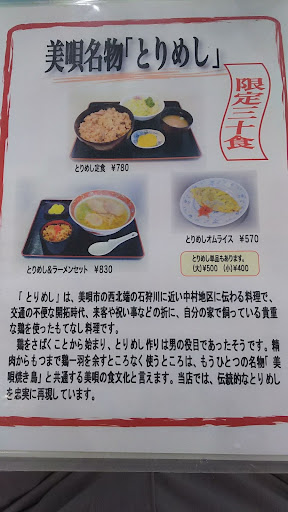 美唄名物「とりめし」
限定三十食
とりめし定食 ¥780
とりめし&ラーメンセット ¥830
とりめしオムライス ¥570
とりめし単品もあります。
(大)¥500 (小)¥400
「とりめし」は、美唄市の西北端の石狩川に近い中村地区に伝わる料理で、
交通の不便な開拓時代、来客や祝い事などの折に、自分の家で飼っている貴重
な鶏を使ったもてなし料理です。
鶏をさばくことから始まり、とりめし作りは男の役目であったそうです。精
肉からもつまで鶏一羽を余すところなく使うところは、もうひとつの名物「美
唄焼き鳥」と共通する美唄の食文化と言えます。当店では、伝統的なとりめし
を忠実に再現しています。